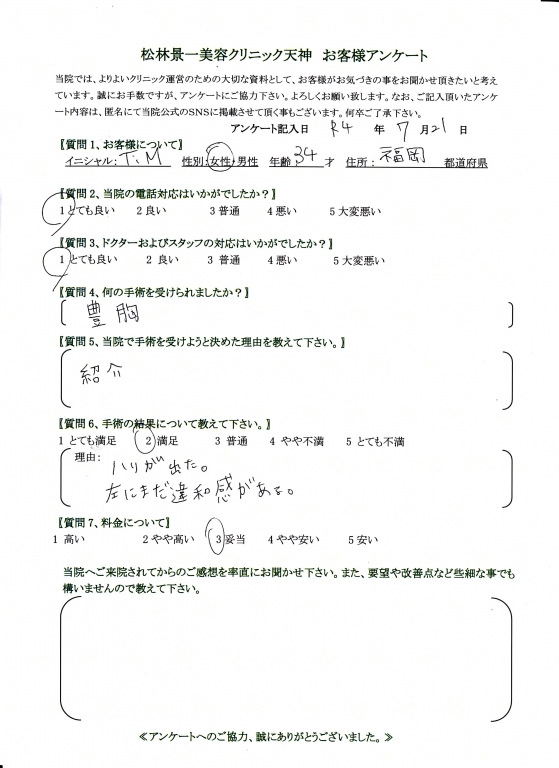 松林景一美容クリニック天神　お客様アンケート
当院では、よりよいクリニック運営のための大切な資料として、お客様がお気づきの事をお聞かせ頂きたいと考え
ています。誠にお手数ですが、アンケートにご協力下さい。よろしくお願い致します。なお、ご記入頂いたアンケ
ート内容は、匿名にて当院公式のSNSに掲載させて頂く事もございます。何卒ご了承下さい。
アンケート記入日　R4　年　7　月21　日
〖質問1、お客様について〗
イニシャル：T.M　性別：女性・男性　年齢 34 才　住所：　福岡　都道府県
〖質問2、当院の電話対応はいかがでしたか？〗
1とても良い　2良い　3普通　4悪い　5大変悪い
〖質問3、ドクターおよびスタッフの対応はいかがでしたか？〗
1とても良い　2 良い　3 普通　4悪い　5大変悪い
〖質問4、何の手術を受けられましたか？〗
豊胸
〖質問5、当院で手術を受けようと決めた理由を教えて下さい。〗
紹介
〖質問6、手術の結果について教えて下さい。〗
1 とても満足　2満足　3 普通　4 やや不満　5 とても不満
理由：　ハリが出た。
左にまだ違和感がある。
〖質問7、料金について〗
1 高い　2やや高い　3妥当　4やや安い　5安い
当院へご来院されてからのご感想を率直にお聞かせ下さい。また、要望や改善点など些細な事でも
構いませんので教えて下さい。
≪アンケートへのご協力、誠にありがとうございました。≫